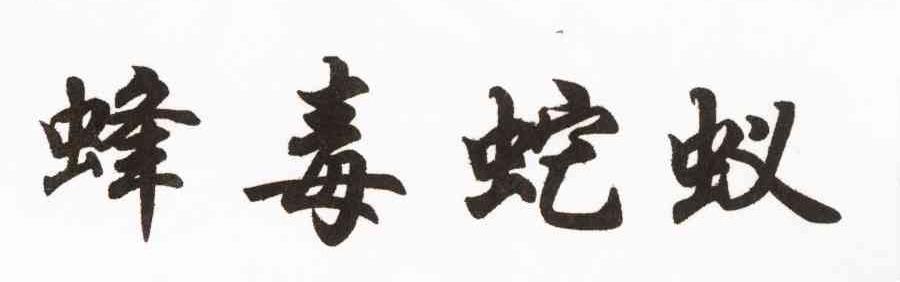 蜂毒蛇蚁